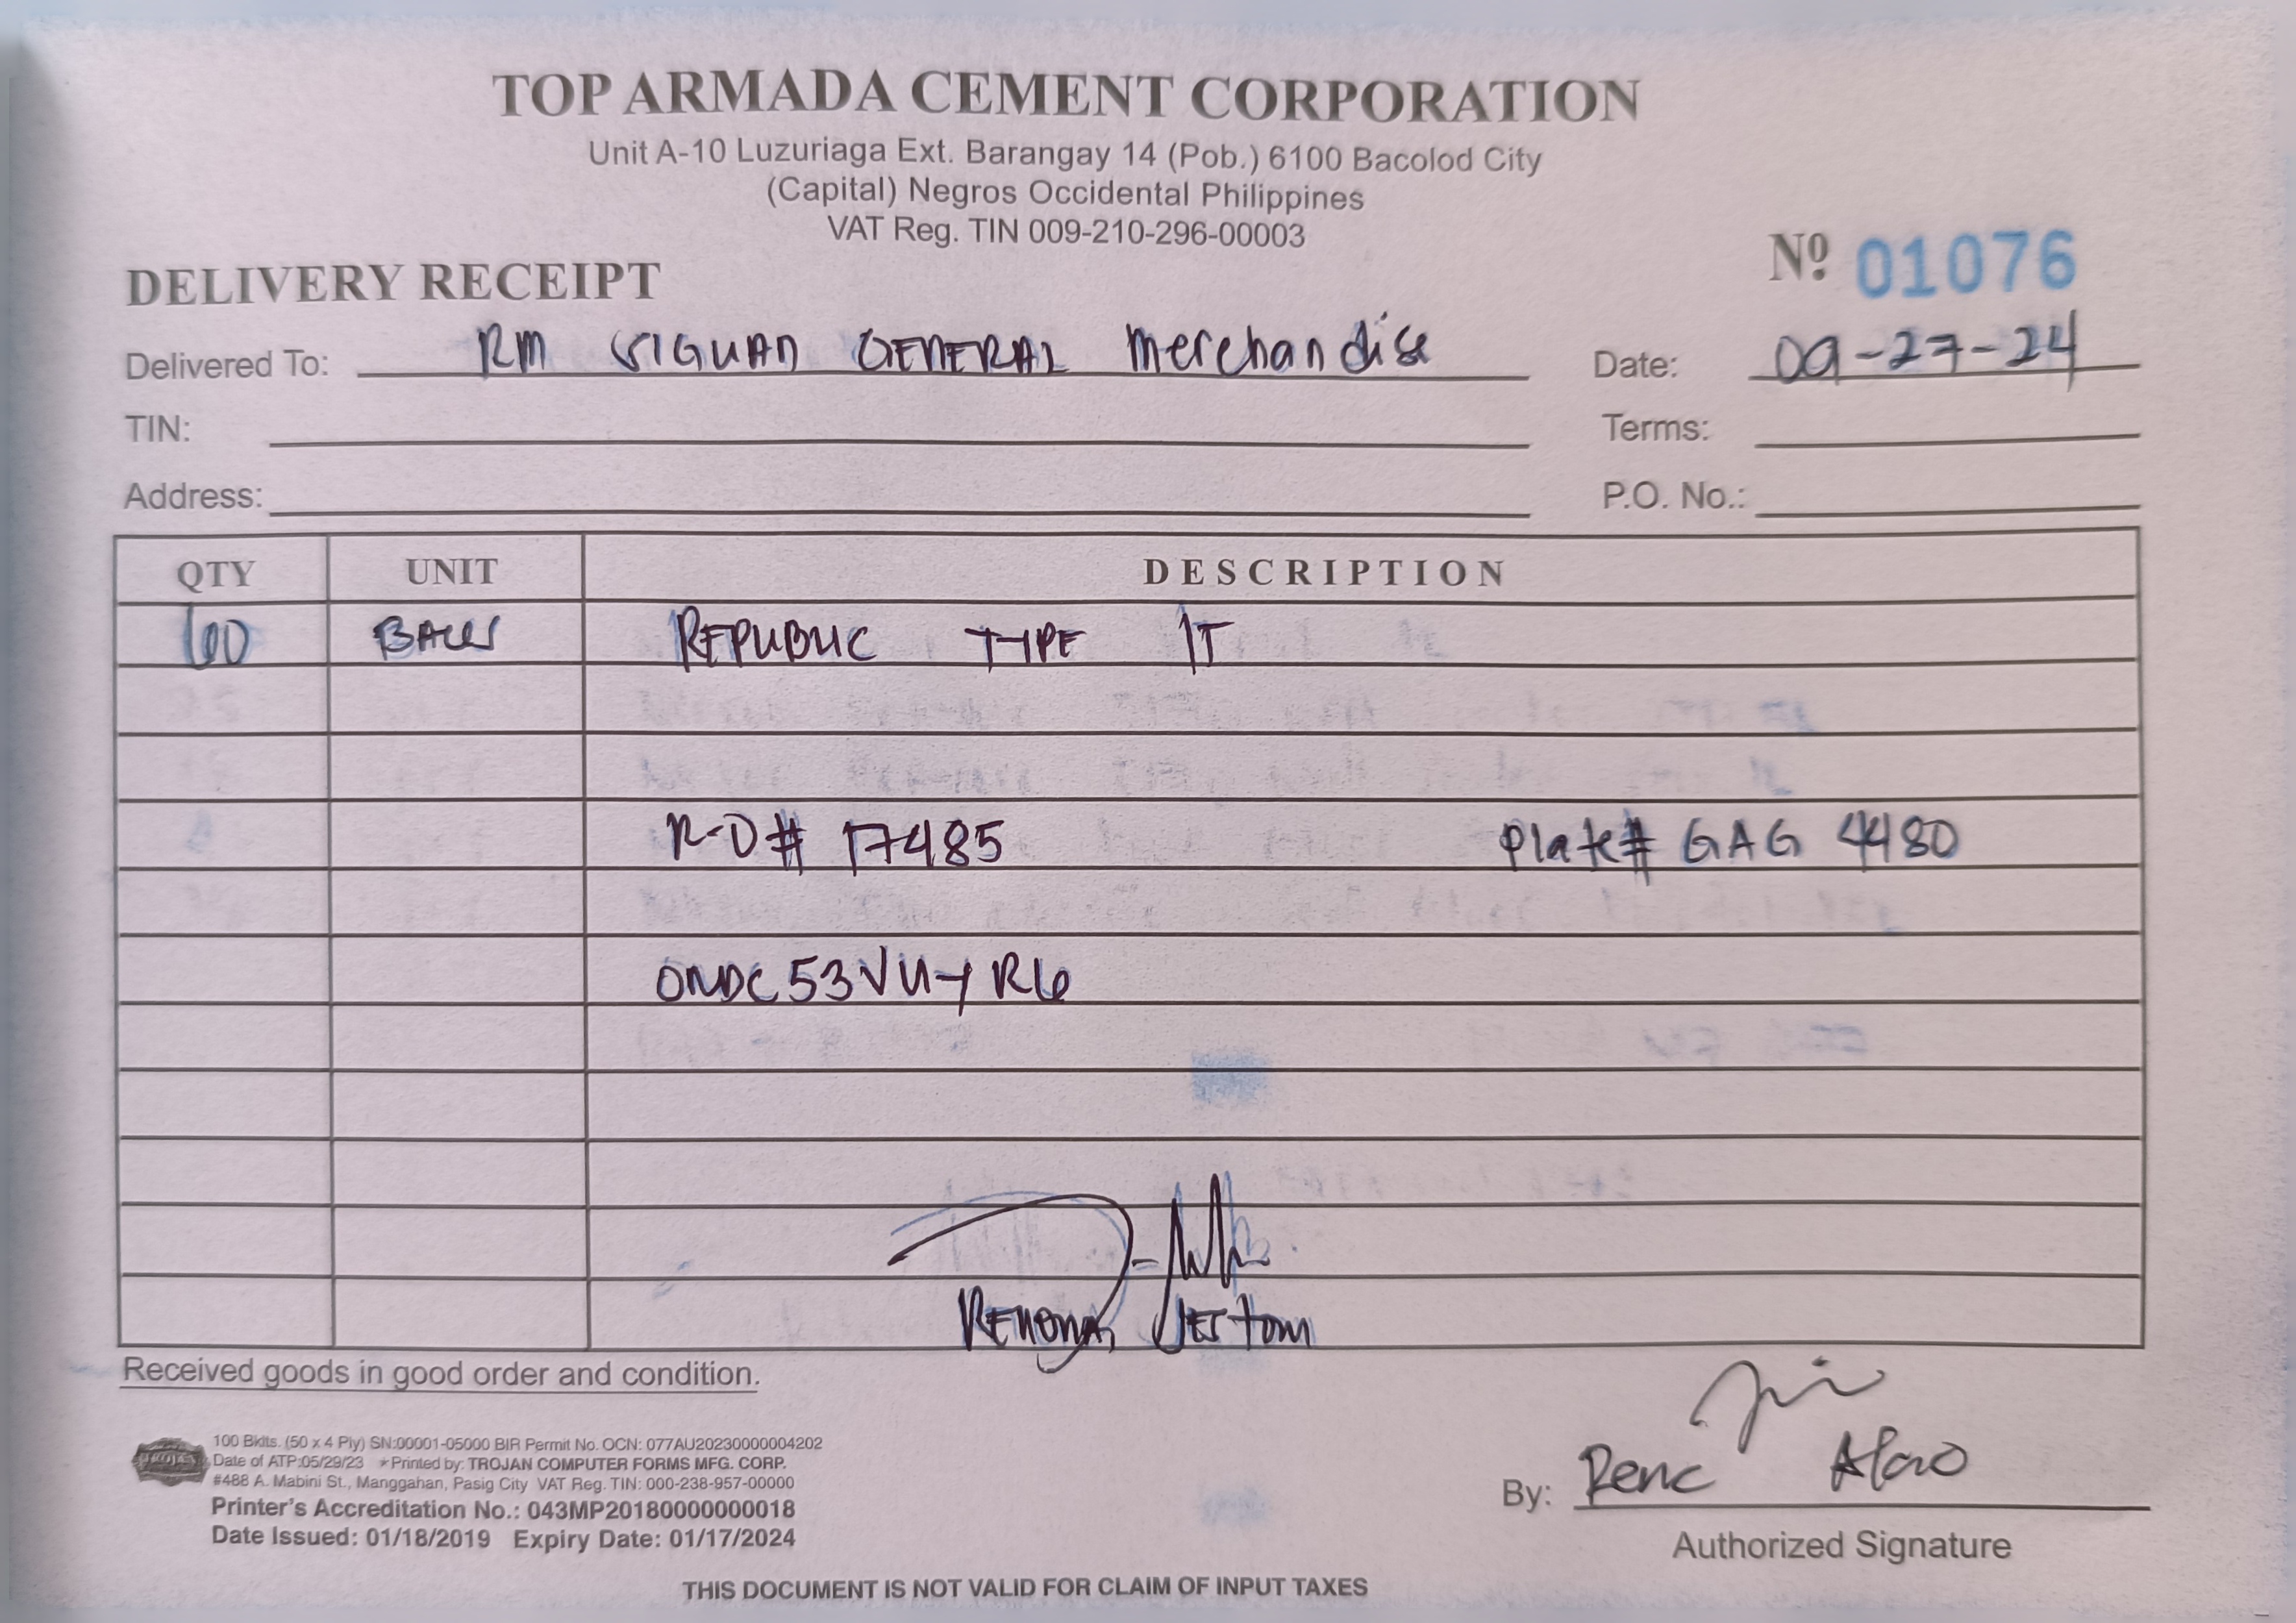 TOP ARMADA CEMENT CORPORATION
Unit A-10 Luzuriaga Ext. Barangay 14 (Pob.) 6100 Bacolod City
(Capital) Negros Occidental Philippines
VAT Reg. TIN 009-210-296-00003
DELIVERY RECEIPT
Nº 01076
Delivered To: RM SIGUAN GENERAL Merchandise
Date: 09-27-24
TIN:
Terms:
Address:
P.O. No.:
QTY UNIT DESCRIPTION
REPUBLIC TYPE 1T
R-O# 17485 Plate# GAG 4480
ONDC53VUYR6
Received goods in good order and condition.
TROJAN
100 Bklts. (50 x 4 Ply) SN:00001-05000 BIR Permit No. OCN: 077AU20230000004202
Date of ATP:05/29/23 *Printed by: TROJAN COMPUTER FORMS MFG. CORP.
#488 A. Mabini St., Manggahan, Pasig City VAT Reg. TIN: 000-238-957-00000
Printer's Accreditation No.: 043MP20180000000018
Date Issued: 01/18/2019 Expiry Date: 01/17/2024
By:
Authorized Signature
THIS DOCUMENT IS NOT VALID FOR CLAIM OF INPUT TAXES